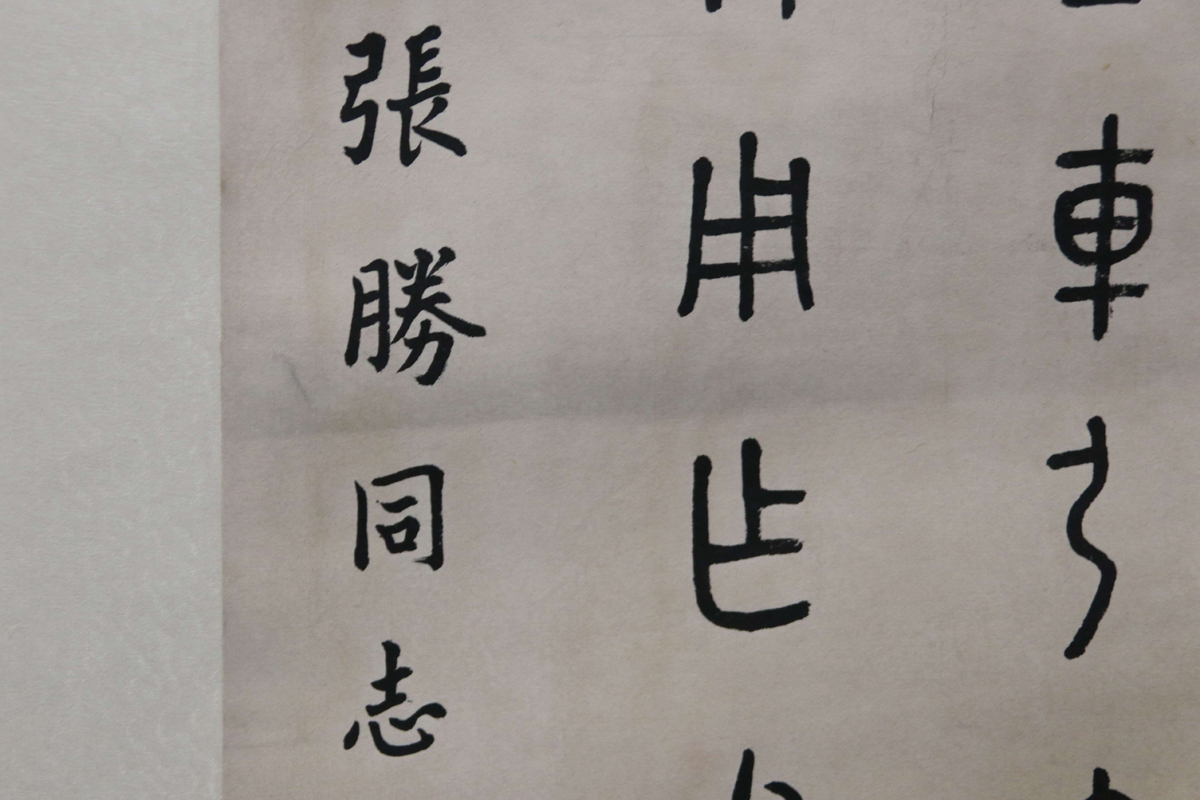 車
用乍
張勝同志